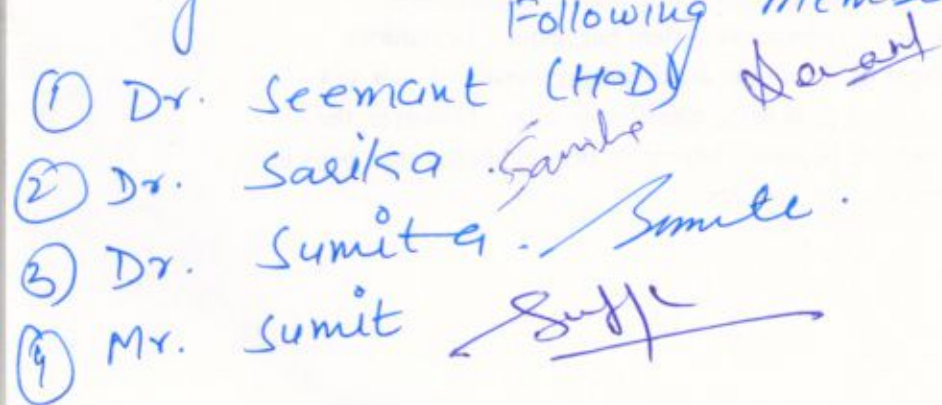 Following
① Dr. Seemant (HOD)
② Dr. Sarika
③ Dr. Sumita. Sumita.
④ Mr. Sumit